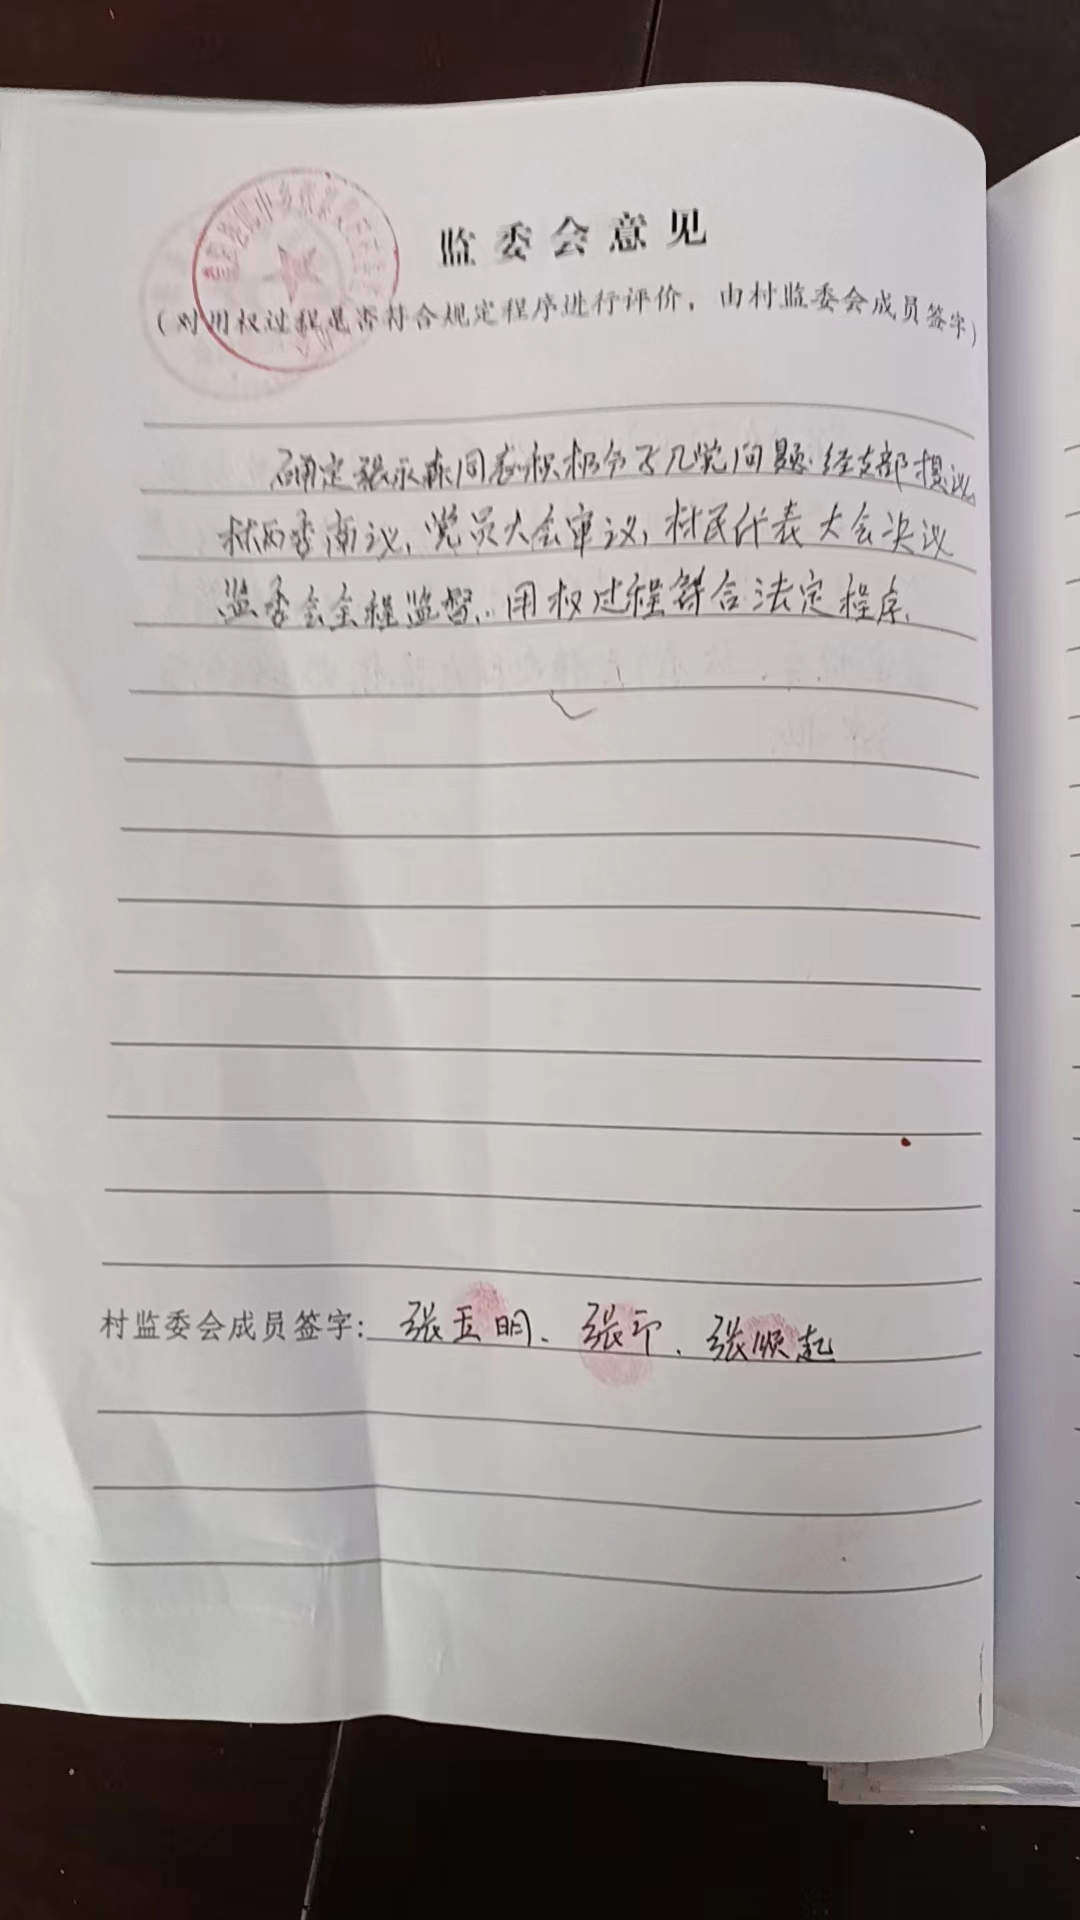 监委会意见
(对用权过程是否符合规定程序进行评价，由村监委会成员签字)
确定张永森同志积极分子入党问题.经支部提议,
村两委商议，党员大会审议，村民代表大会决议
监委会全程监督，用权过程符合法定程序.
村监委会成员签字: 张玉明、张平、张顺起